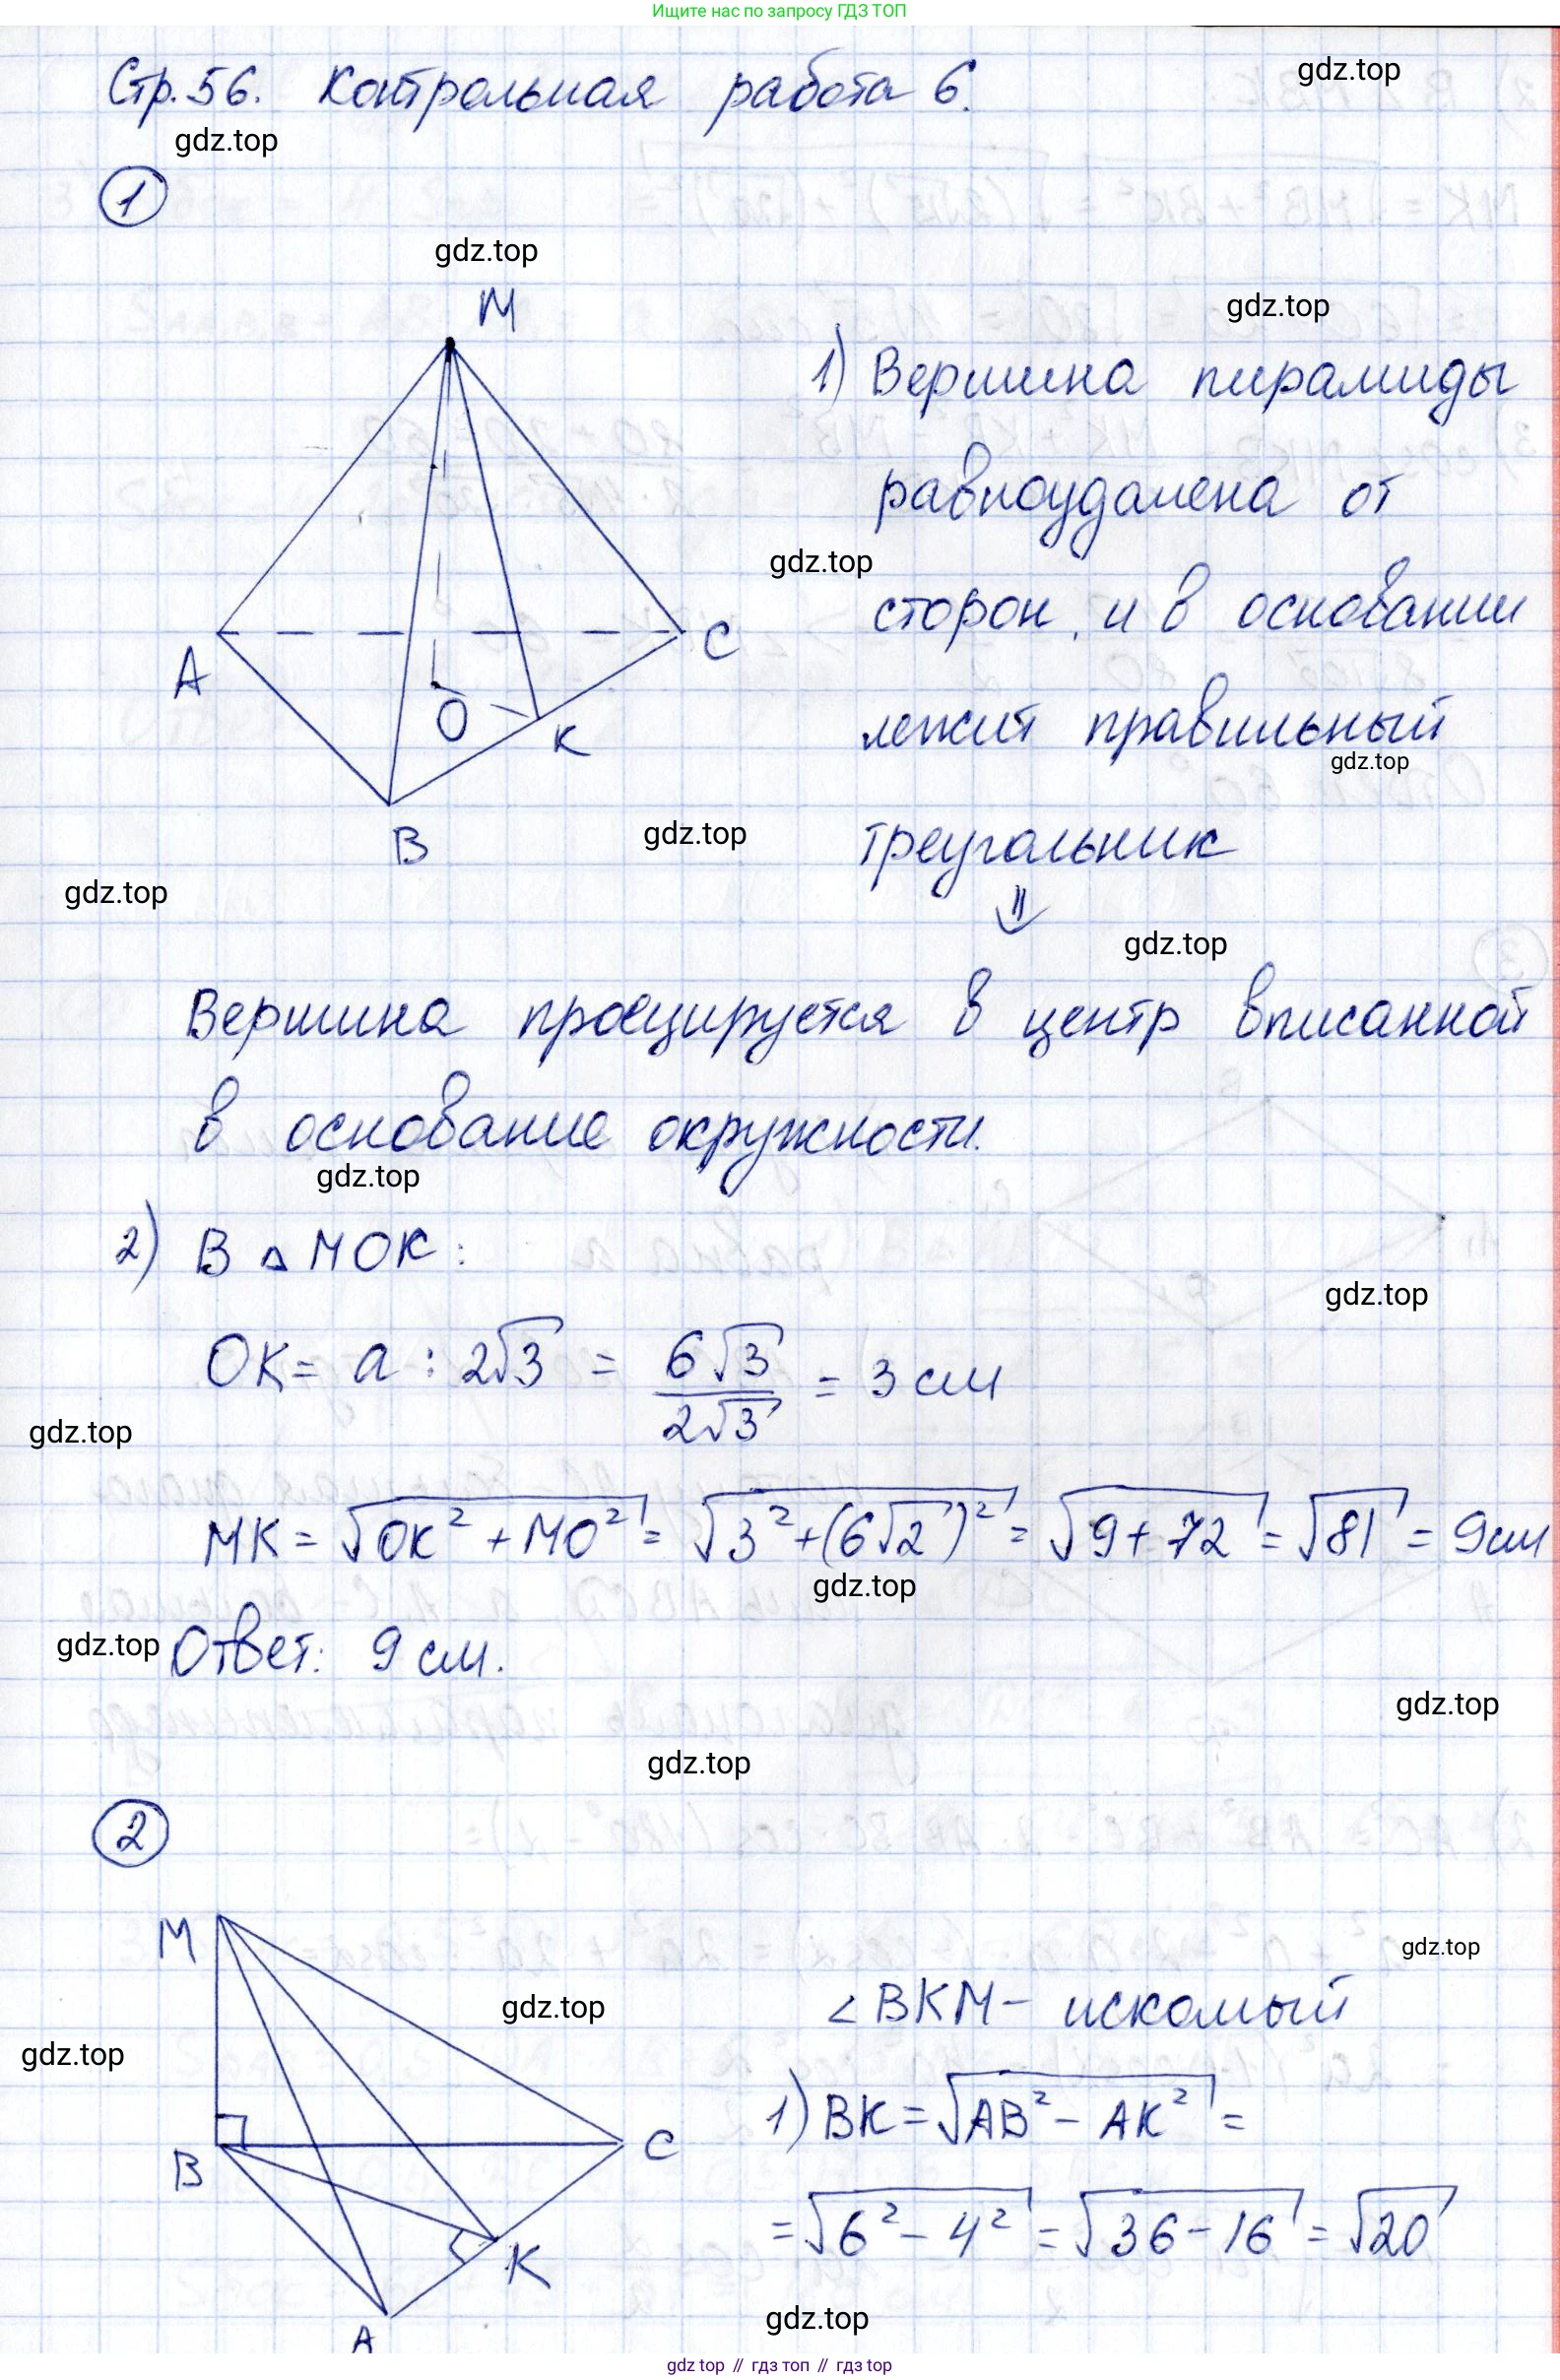 Ищите нас по запросу ГДЗ ТОП
Стр. 56. Контрольная работа 6.
gdz.top
gdz.top
1
gdz.top
M
gdz.top
1) Вершина пирамиды
равноудалена от
gdz.top
сторон, и в основании
A
C
O
K
лежит правильный
gdz.top
B
gdz.top
треугольник
gdz.top
⇓
gdz.top
Вершина проецируется в центр вписанной
в основание окружности.
gdz.top
2) В △ MOK:
gdz.top
OK = a : 2√3 = 6√3 / 2√3 = 3 см
gdz.top
MK = √(OK² + MO²) = √(3² + (6√2)²) = √(9 + 72) = √81 = 9 см
gdz.top
gdz.top Ответ: 9 см.
gdz.top
gdz.top
2
M
gdz.top
gdz.top
∠BKM – искомый
gdz.top
1) BK = √(AB² – AK²) =
B
C
= √(6² – 4²) = √(36 – 16) = √20
K
gdz.top
A
gdz top // гдз топ // гдз top